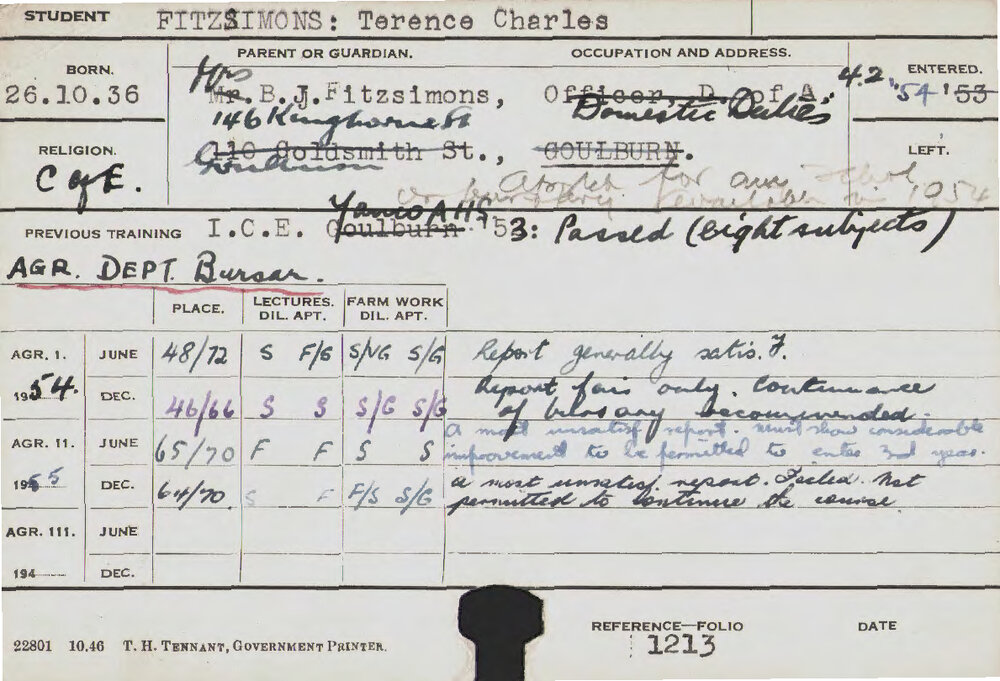 STUDENT FITZSIMONS: Terence Charles
PARENT OR GUARDIAN. OCCUPATION AND ADDRESS.
BORN. ENTERED.
Mrs 4.2.
26.10.36 Mr. B.J.Fitzsimons, Officer, D. of A. '54 '53
146 Kinghorne St Domestic Duties
RELIGION. 110 Goldsmith St., GOULBURN. LEFT.
C of E. Goulburn
for an
in 1954
Yanco AHS
PREVIOUS TRAINING I.C.E. Goulburn '53: Passed (eight subjects)
AGR. DEPT. Bursar.
PLACE. LECTURES. DIL. APT. FARM WORK DIL. APT.
AGR. I. JUNE 48/72 S F/G S/VG S/G Report generally satis. F.
1954. DEC. 46/66 S S S/G S/G Report fair only. Continuance
of bursary recommended.
AGR. II. JUNE 65/70 F F S S A most unsatisf. report. Must show considerable
improvement to be permitted to enter 3rd year.
1955 DEC. 64/70 S F F/S S/G A most unsatisf. report. Failed. Not
permitted to continue the course
AGR. III. JUNE
194 DEC.
REFERENCE—FOLIO DATE
1213
22801 10.46 T. H. TENNANT, GOVERNMENT PRINTER.